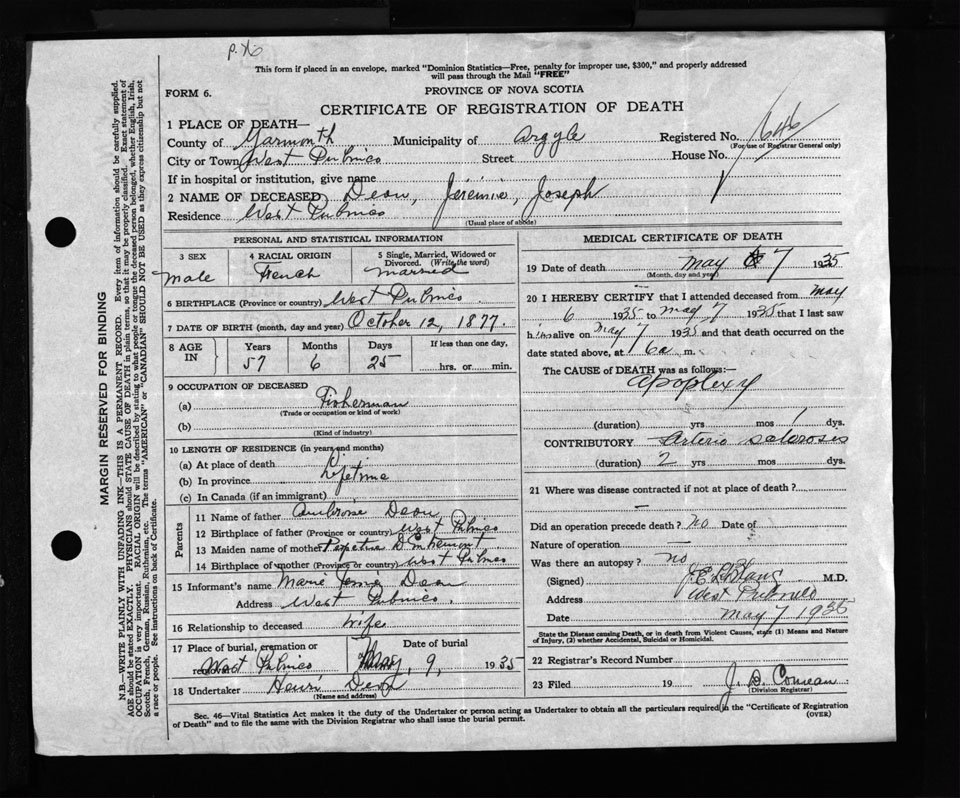 P. 76
This form if placed in an envelope, marked "Dominion Statistics—Free, penalty for improper use, $300," and properly addressed
will pass through the Mail "FREE"
FORM 6.
PROVINCE OF NOVA SCOTIA
CERTIFICATE OF REGISTRATION OF DEATH
MARGIN RESERVED FOR BINDING
N.B.—WRITE PLAINLY WITH UNFADING INK—THIS IS A PERMANENT RECORD. Every item of information should be carefully supplied.
AGE should be stated EXACTLY. PHYSICIANS should STATE CAUSE OF DEATH in plain terms, so that it may be properly classified. Exact statement of
OCCUPATION is very important. RACIAL ORIGIN will be described by stating to what people or tongue the deceased person belonged, whether English, Irish,
Scotch, French, German, Russian, Ruthenian, etc. The terms "AMERICAN" or "CANADIAN" SHOULD NOT BE USED as they express citizenship but not
a race or people. See instructions on back of Certificate.
1 PLACE OF DEATH—
County of Yarmouth Municipality of Argyle Registered No. 646
(For use of Registrar General only)
City or Town West Pubnico Street House No.
If in hospital or institution, give name
2 NAME OF DECEASED Deon, Jéremie, Joseph
Residence West Pubnico
(Usual place of abode)
PERSONAL AND STATISTICAL INFORMATION
3 SEX 4 RACIAL ORIGIN 5 Single, Married, Widowed or
Divorced. (Write the word)
Male French Married
6 BIRTHPLACE (Province or country) West Pubnico
7 DATE OF BIRTH (month, day and year) October 12, 1877.
8 AGE IN Years Months Days If less than one day,
57 6 25 hrs. or min.
9 OCCUPATION OF DECEASED
(a) Fisherman
(Trade or occupation or kind of work)
(b)
(Kind of industry)
10 LENGTH OF RESIDENCE (in years and months)
(a) At place of death
(b) In province Lifetime
(c) In Canada (if an immigrant)
Parents
11 Name of father Ambroise Deon
12 Birthplace of father (Province or country) West Pubnico
13 Maiden name of mother D'Entremont
14 Birthplace of mother (Province or country) West Pubnico
15 Informant's name Marie Deon
Address West Pubnico.
16 Relationship to deceased Wife
17 Place of burial, cremation or removal Date of burial
West Pubnico May, 9, 1935
18 Undertaker Henri Deon
(Name and address)
MEDICAL CERTIFICATE OF DEATH
19 Date of death May 7 1935
(Month, day and year)
20 I HEREBY CERTIFY that I attended deceased from May
6 1935 to May 7 1935 that I last saw
him alive on May 7 1935 and that death occurred on
date stated above, at 6a m.
The CAUSE of DEATH was as follows:
Apoplexy
(duration) yrs mos 1 dys.
CONTRIBUTORY Arterio sclerosis
(duration) 2 yrs mos dys.
21 Where was disease contracted if not at place of death?
Did an operation precede death? no Date of
Nature of operation —
Was there an autopsy? no
(Signed) J. E. LeBlanc M.D.
Address West Pubnico
Date May 7 1935
State the Disease causing Death, or in death from Violent Causes, state (1) Means and Nature
of Injury, (2) whether Accidental, Suicidal or Homicidal.
22 Registrar's Record Number
23 Filed 19 J. B. Comeau
(Division Registrar)
Sec. 46—Vital Statistics Act makes it the duty of the Undertaker or person acting as Undertaker to obtain all the particulars required in the "Certificate of Registration
of Death" and to file the same with the Division Registrar who shall issue the burial permit.
(OVER)